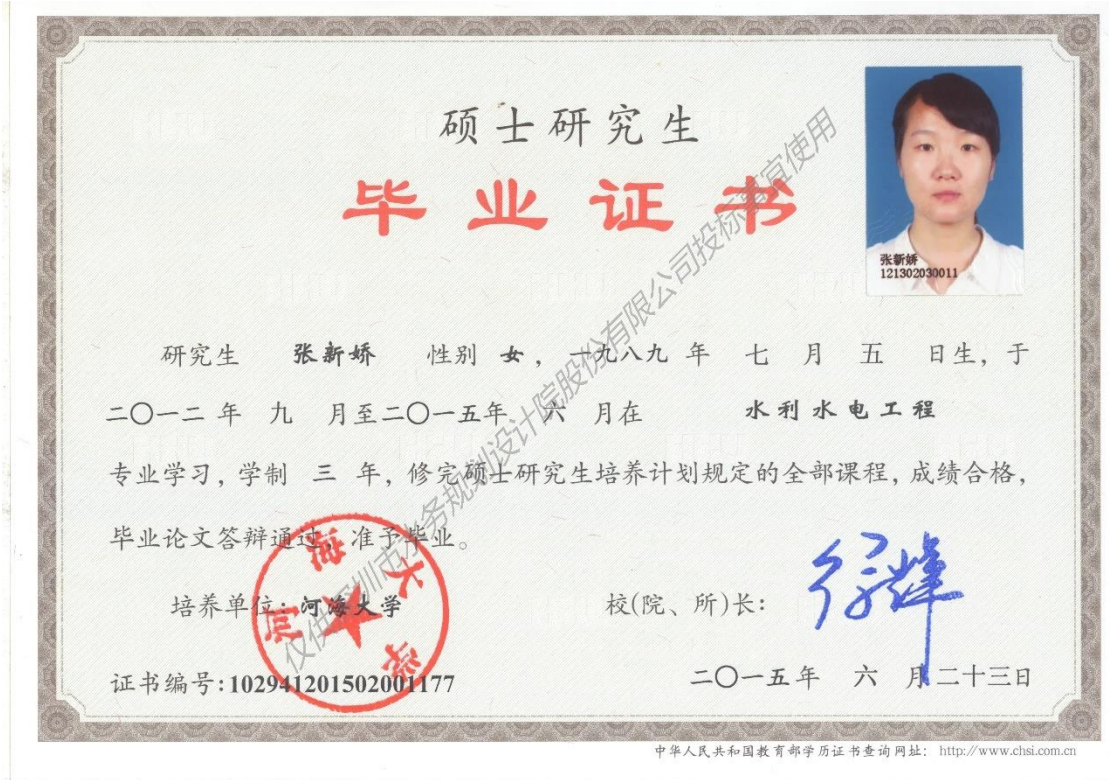 硕士研究生
毕业证书
张新娇
121302030011
研究生 张新娇 性别 女，一九八九 年 七 月 五 日生，于
二〇一二 年 九 月至二〇一五年 六 月在 水利水电工程
专业学习，学制 三 年，修完硕士研究生培养计划规定的全部课程，成绩合格，
毕业论文答辩通过，准予毕业。
培养单位：河海大学
校(院、所)长：
河海大学
证书编号：102941201502001177
二〇一五年 六 月二十三日
仅供深圳市水务规划设计院股份有限公司投标事宜使用
中华人民共和国教育部学历证书查询网址： http://www.chsi.com.cn